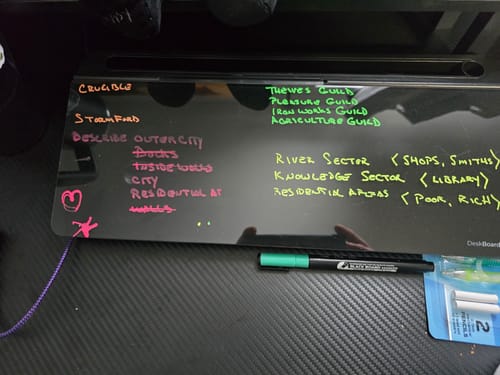 CRUCIBLE
STORMFORD
DESCRIBE OUTERCITY
DOCKS
INSIDE WALLS
CITY
RESIDENTIAL AT
WALLS
THEIVES GUILD
PLEASURE GUILD
IRON WORKS GUILD
AGRICULTURE GUILD
RIVER SECTOR (SHOPS, SMITHS)
KNOWLEDGE SECTOR (LIBRARY)
RESIDENTIAL AREAS (POOR, RICH)
DeskBoard
BLACK BOARD
2
PENCILS